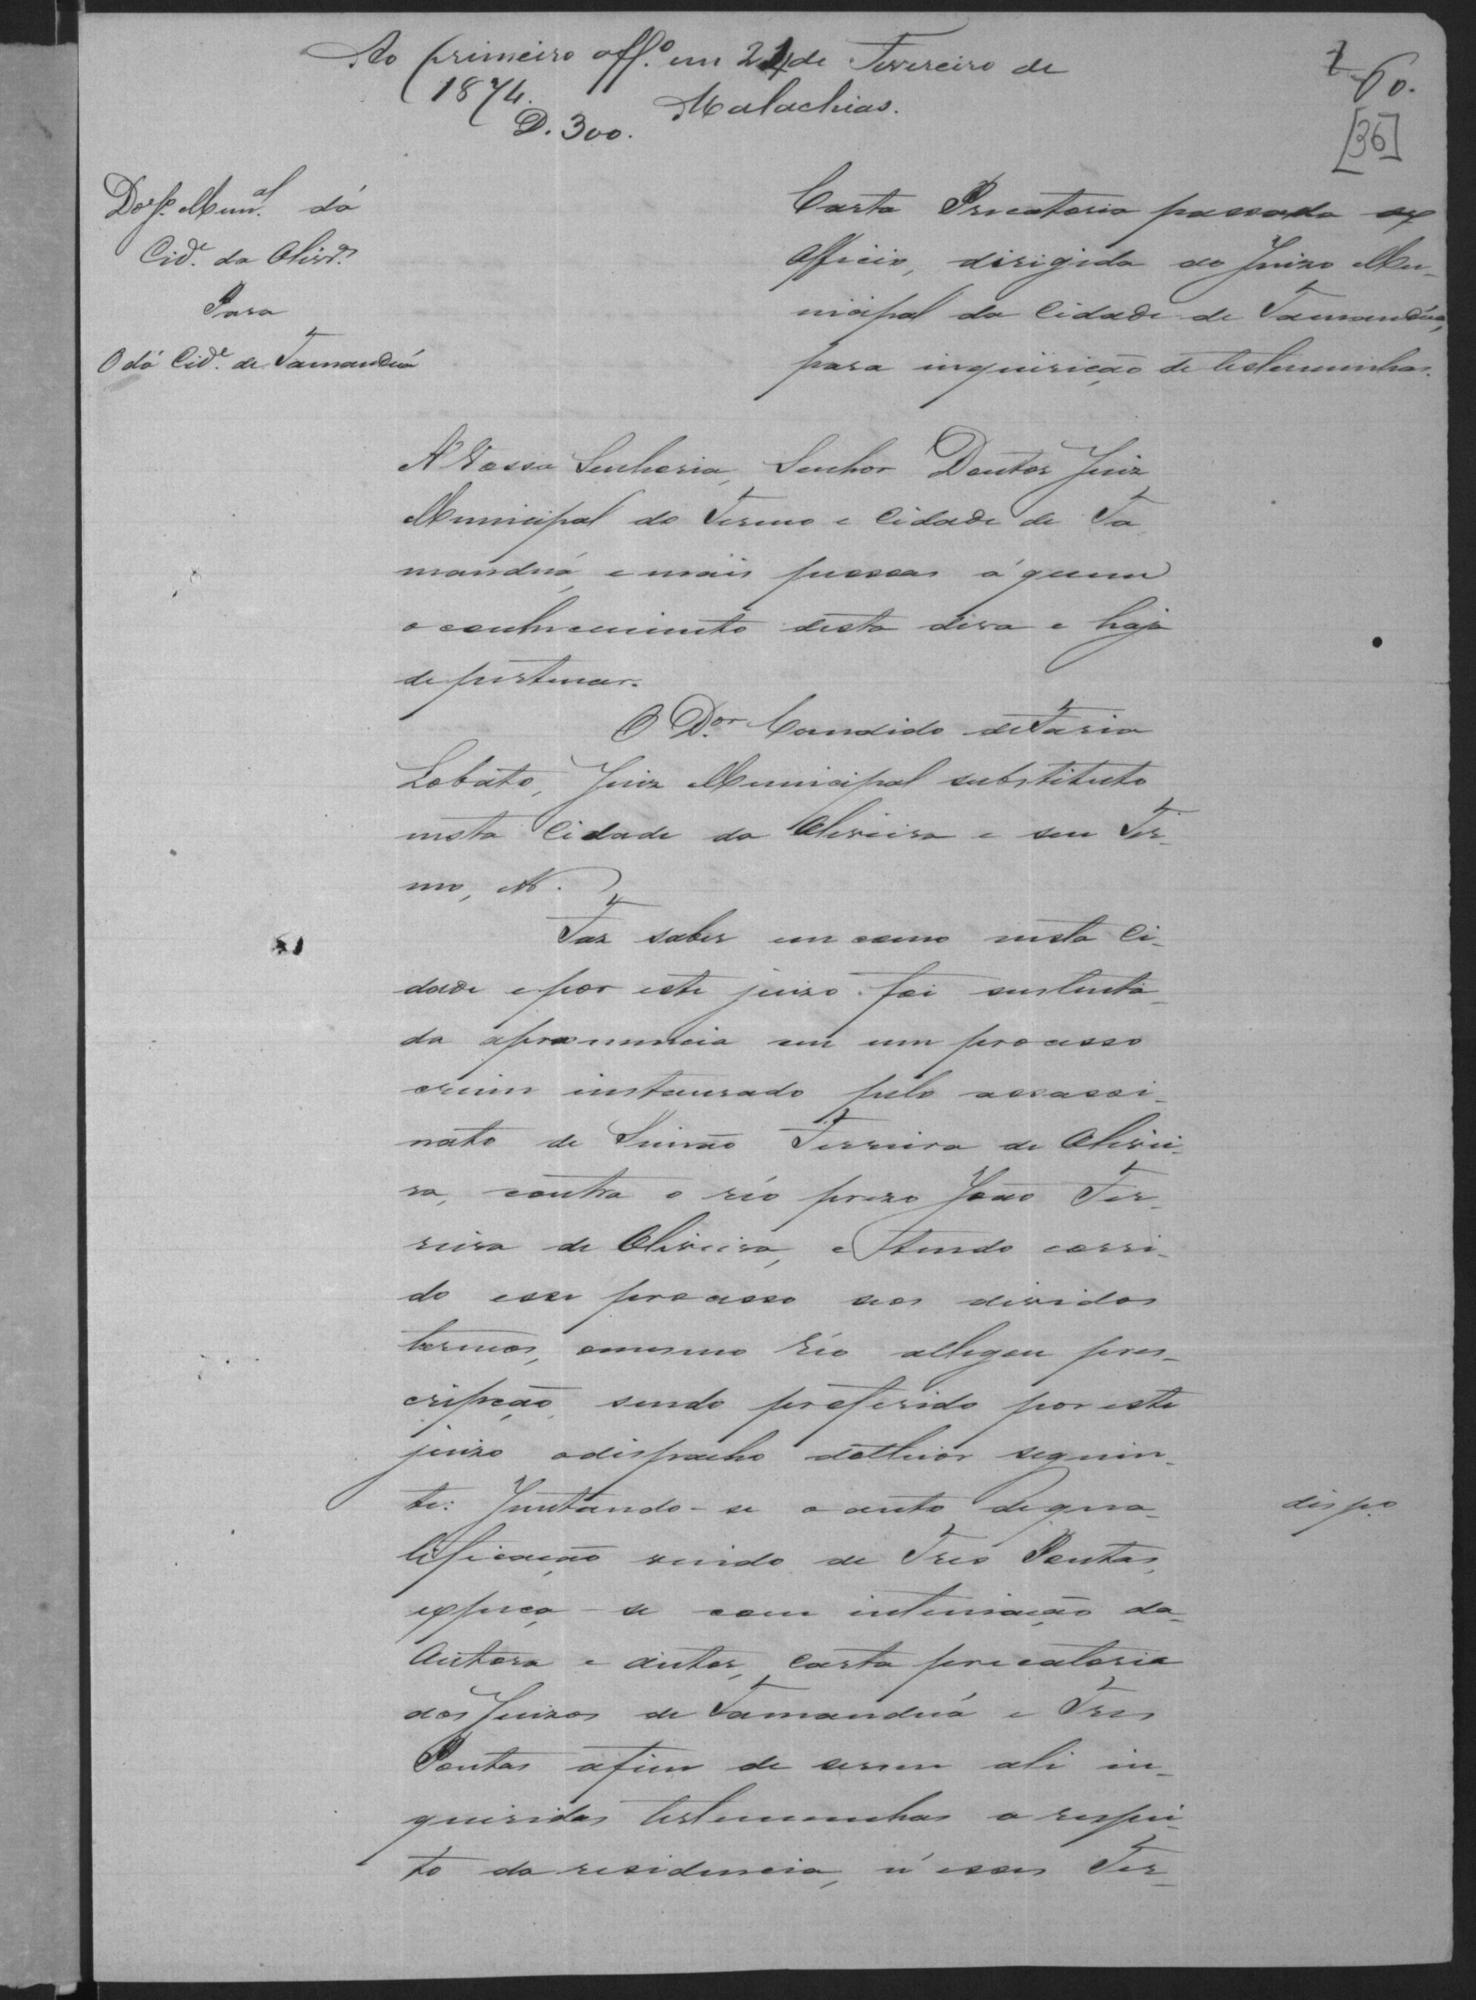 Ao primeiro off.º em 24 de Fevereiro de
1874.
Malachias.
D. 300.
60.
[36]
Do Jº. Mun.al da
Cid.e da Olivr.ª
Para
O da Cid.e de Tamanduá
Carta Precatoria passada ex
officio, dirigida ao Juizo Mu-
nicipal da Cidade de Tamanduá,
para inquirição de testemunhas.
A Vossa Senhoria, Senhor Doutor Juiz
Municipal do Termo e Cidade de Ta
manduá, e mais pessoas á quem
o conhecimento desta deva e haja
de pertencer.
O D.or Candido de Faria
Lobato, Juiz Municipal substituto
nesta Cidade da Oliveira e seu Ter-
mo, &.
Faz saber em como nesta Ci-
dade e por este juizo foi sustenta-
da a pronuncia em um processo
crime instaurado pelo assassi-
nato de Simão Ferreira de Olivei-
ra, contra o réo prezo João Fer-
reira de Oliveira, e tendo corri-
do esse processo seos devidos
termos, o mesmo réo allegou pres-
cripção, sendo proferido por este
juizo o dispacho do theor seguin-
te: Juntando-se o auto de qua-
lificação vindo de Tres Pontas,
expeça-se com intimação da
Autora e autor, carta precatoria
aos Juizos de Tamanduá e Tres
Pontas afim de serem ali in-
queridas testemunhas a respei-
to da residencia, n'esses Ter-
disp.º